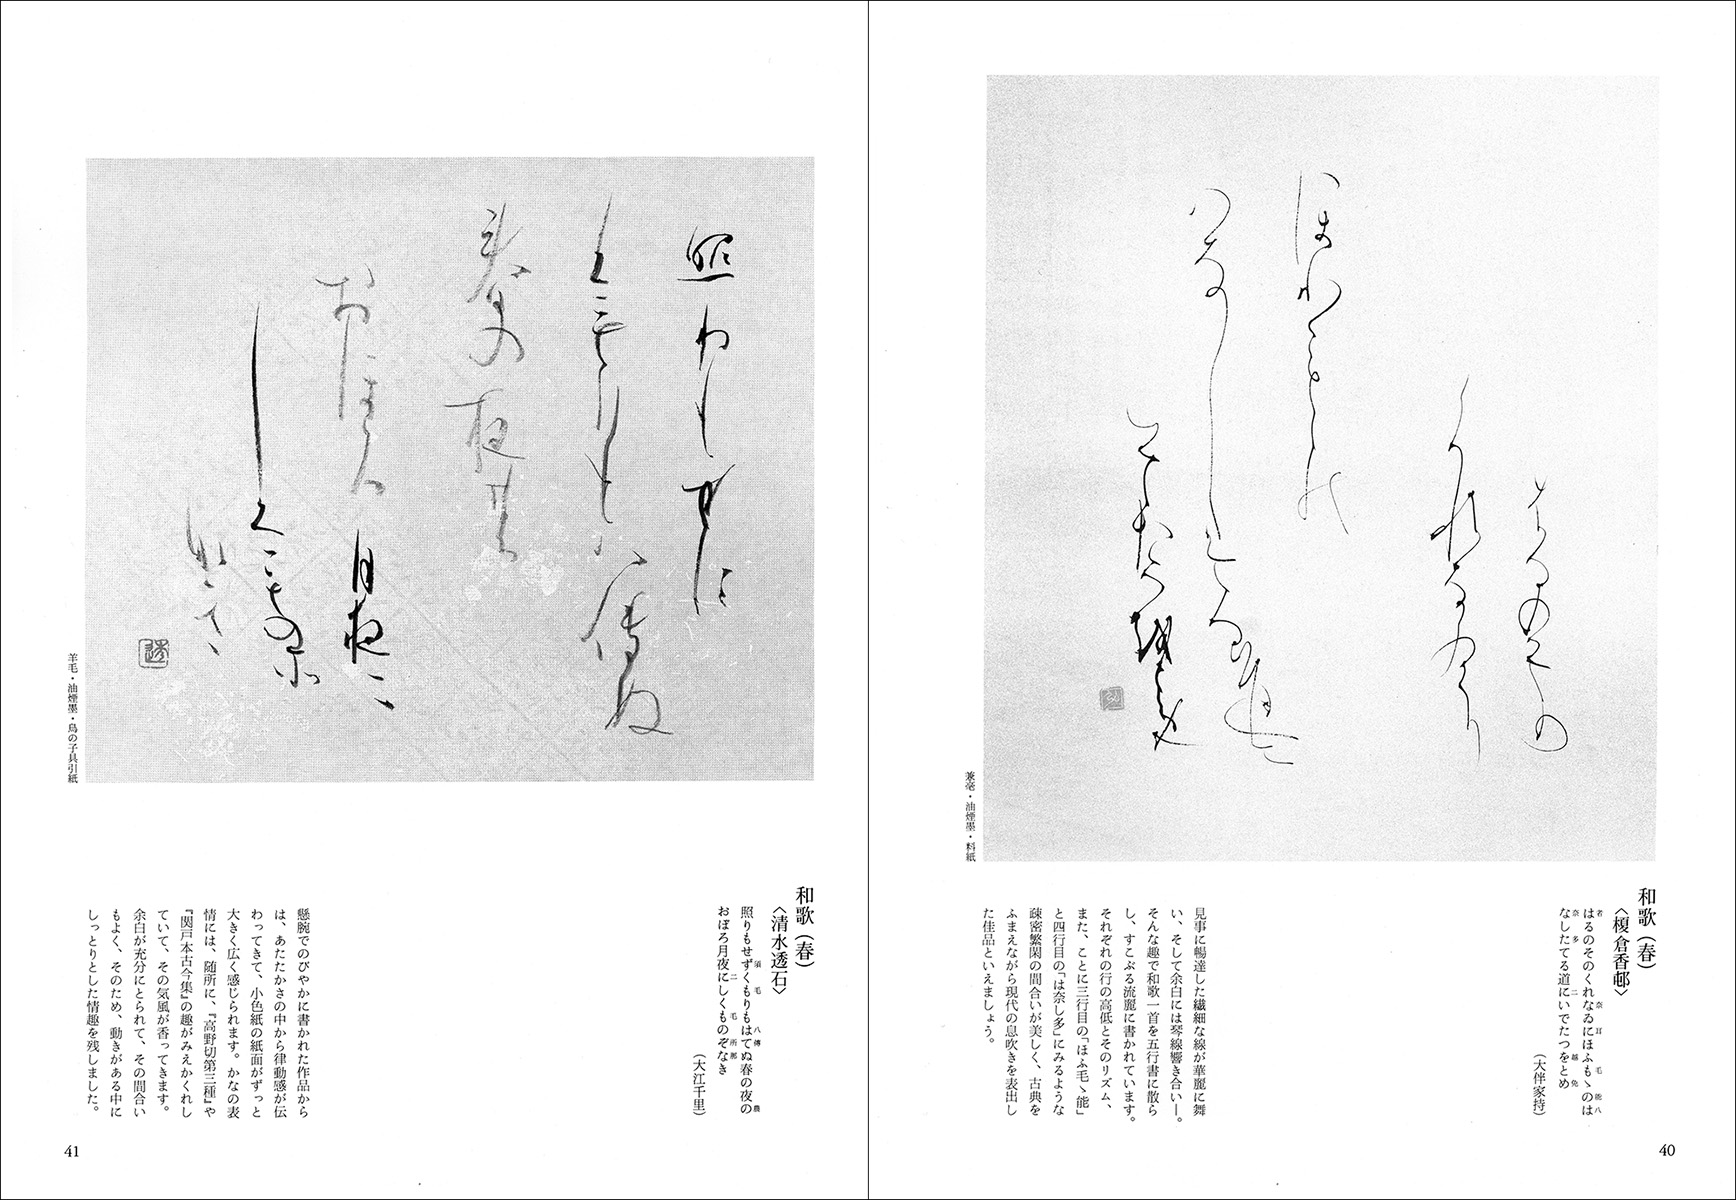 和歌（春）
〈榎倉香邨〉
はるのそのくれなゐにほふもゝのは
なしたてる道にいでたつをとめ
（大伴家持）
見事に暢達した繊細な線が華麗に舞
い、そして余白には琴線響き合い―。
そんな趣で和歌一首を五行書に散ら
し、すこぶる流麗に書かれています。
それぞれの行の高低とそのリズム、
また、ことに三行目の「ほふ毛ゝ能」
と四行目の「は奈し多」にみるような
疎密繁閑の間合いが美しく、古典を
ふまえながら現代の息吹きを表出し
た佳品といえましょう。
兼毫・油煙墨・料紙
40
照りもせず
くもりもはてぬ
春の夜の
おぼろ月夜に
しくものぞ
なき
和歌（春）
〈清水透石〉
照りもせずくもりもはてぬ春の夜の
おぼろ月夜にしくものぞなき
（大江千里）
懸腕でのびやかに書かれた作品から
は、あたたかさの中から律動感が伝
わってきて、小色紙の紙面がずっと
大きく広く感じられます。かなの表
情には、随所に、『高野切第三種』や
『関戸本古今集』の趣がみえかくれし
ていて、その気風が香ってきます。
余白が充分にとられて、その間合い
もよく、そのため、動きがある中に
しっとりとした情趣を残しました。
羊毛・油煙墨・鳥の子具引紙
41